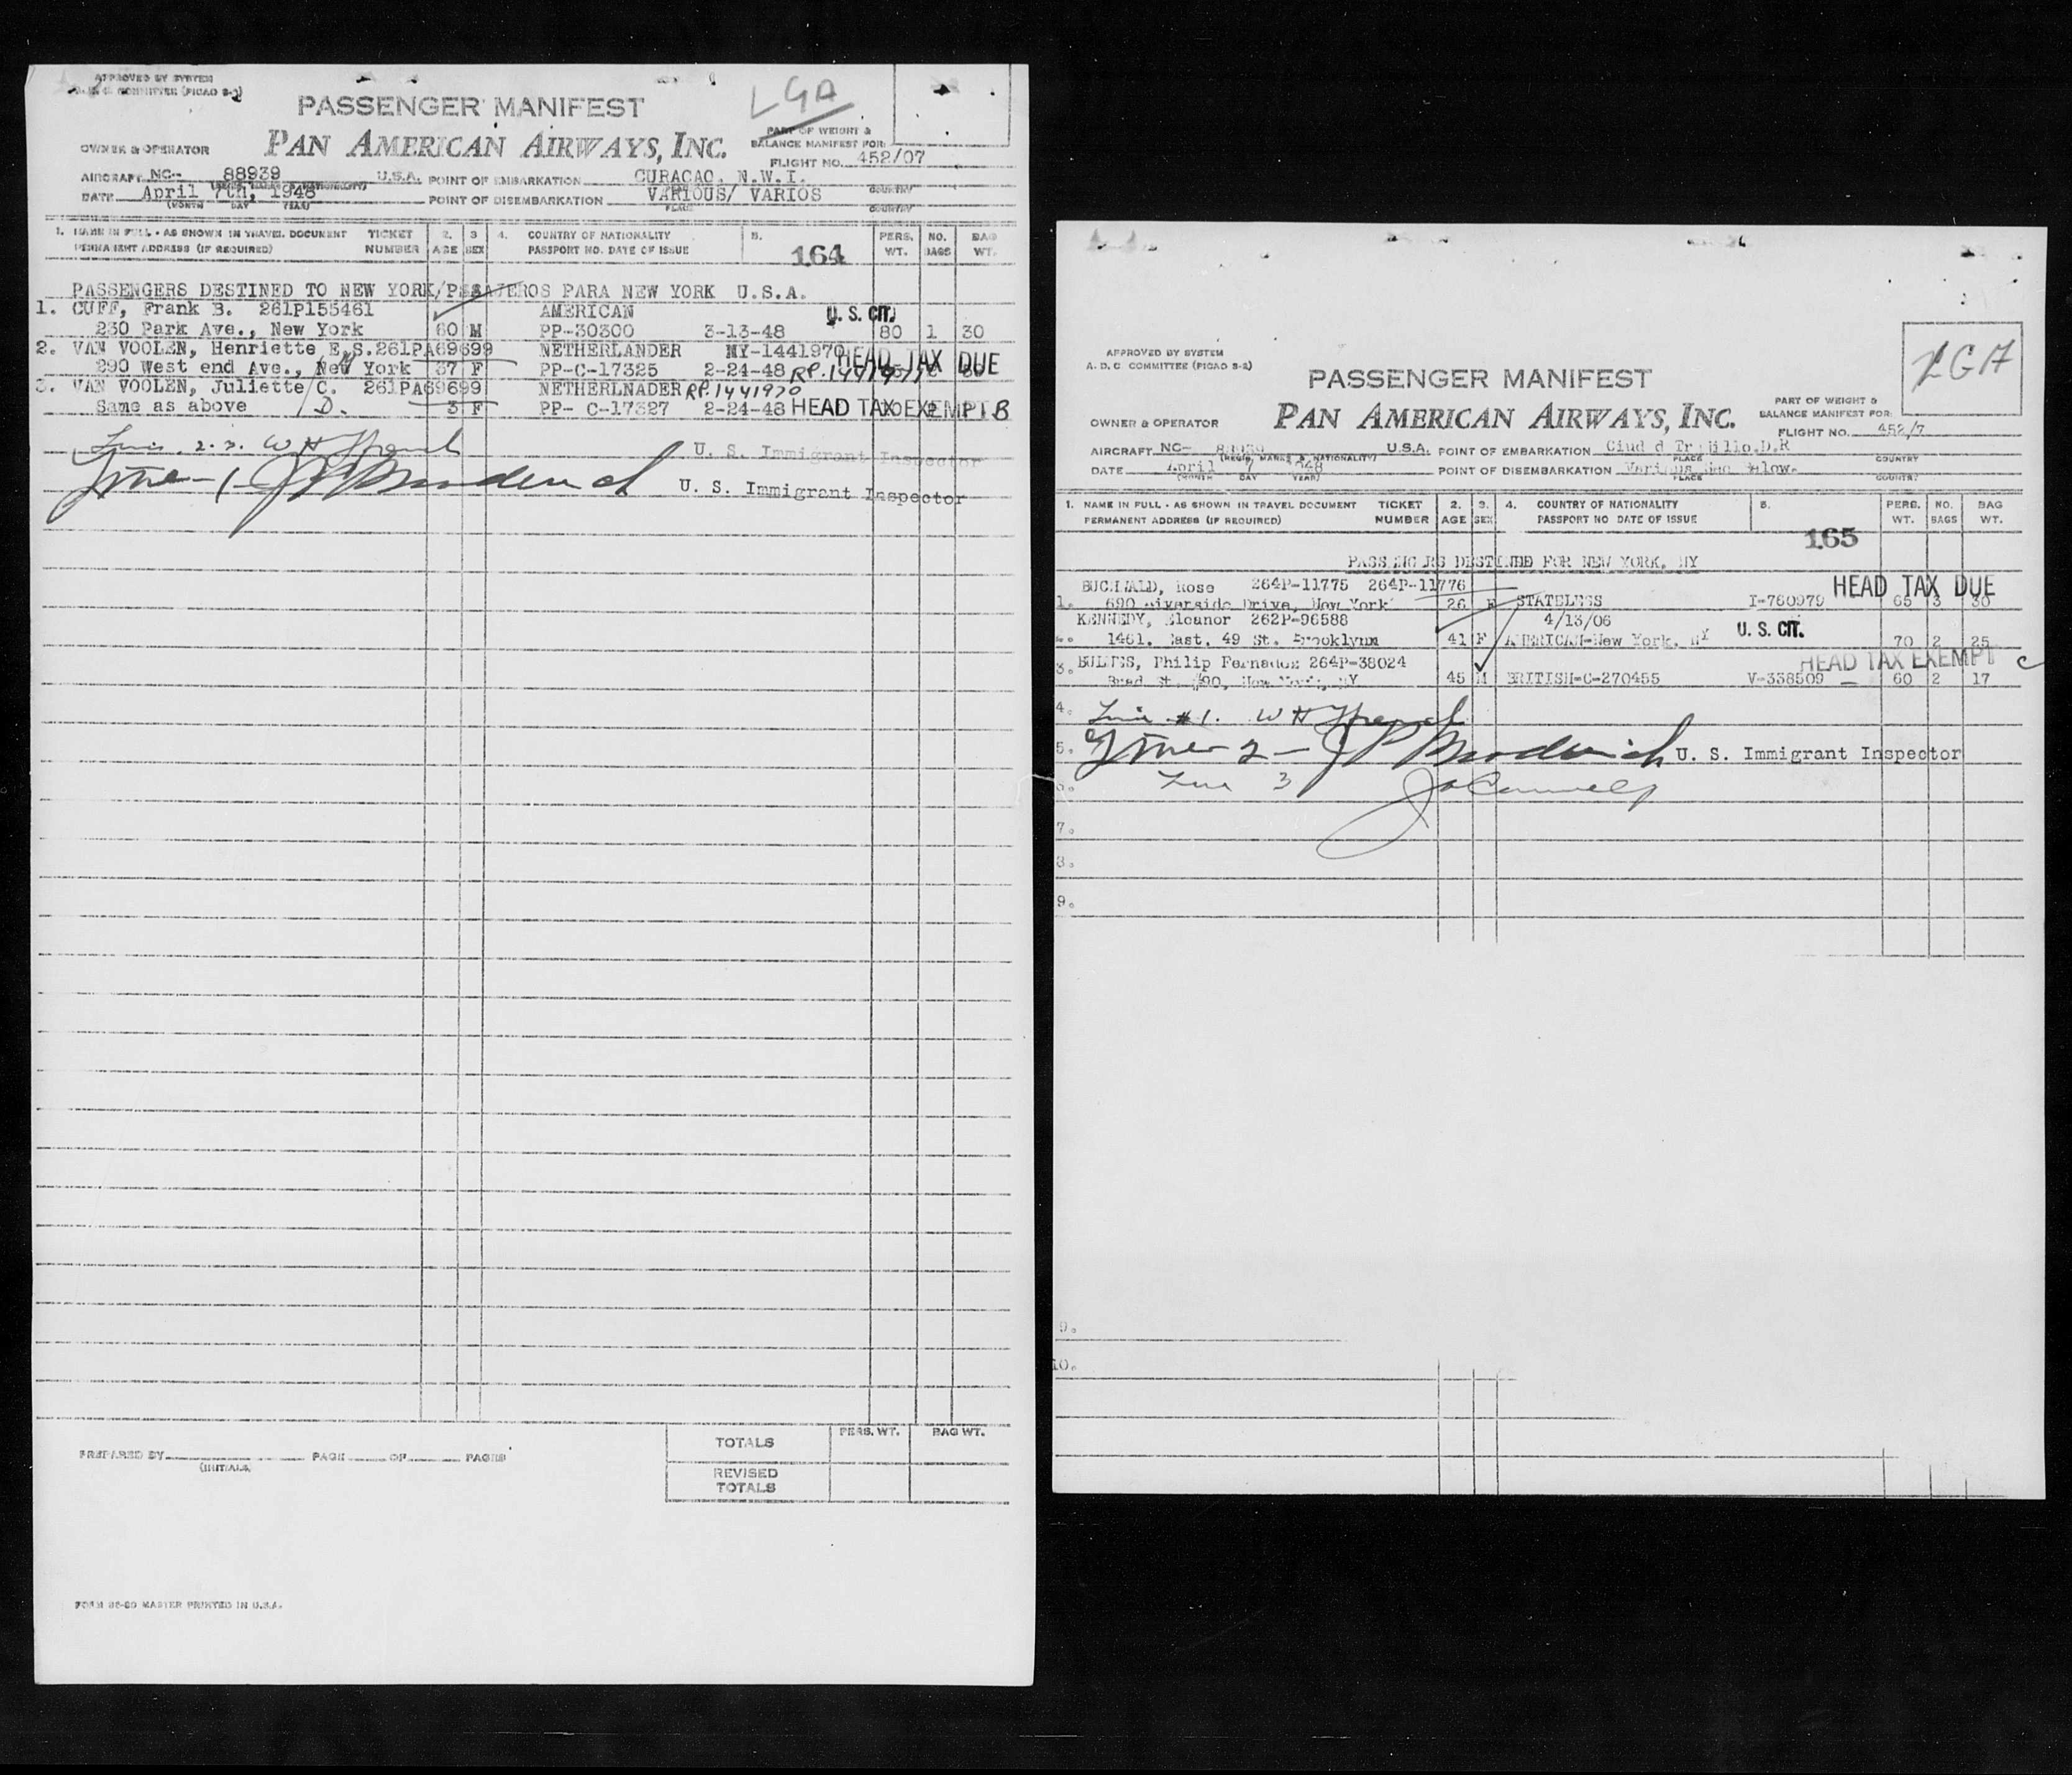 APPROVED BY SYSTEM
COMMITTEE (PICAO S-2)
LGA
PASSENGER MANIFEST
PART OF WEIGHT &
OWNER & OPERATOR PAN AMERICAN AIRWAYS, INC. BALANCE MANIFEST FOR:
FLIGHT NO. 452/07
AIRCRAFT NC- 88939 U.S.A. POINT OF EMBARKATION CURACAO, N.W.I.
DATE April 7th, 1948 POINT OF DISEMBARKATION VARIOUS/ VARIOS COUNTRY
(MONTH DAY YEAR) PLACE COUNTRY
1. NAME IN FULL - AS SHOWN IN TRAVEL DOCUMENT TICKET 2. 3 4. COUNTRY OF NATIONALITY 5. PERS. NO. BAG
PERMANENT ADDRESS (IF REQUIRED) NUMBER AGE SEX PASSPORT NO. DATE OF ISSUE 164 WT. BAGS WT.
PASSENGERS DESTINED TO NEW YORK/PASAJEROS PARA NEW YORK U.S.A.
1. CUFF, Frank B. 261P155461 AMERICAN U. S. CIT.
230 Park Ave., New York 60 M PP-30300 3-13-48 80 1 30
2. VAN VOOLEN, Henriette E.S. 261PA69699 NETHERLANDER NY-1441970 HEAD TAX DUE
290 West end Ave., New York 37 F PP-C-17325 2-24-48
3. VAN VOOLEN, Juliette C. 261PA69699 NETHERLNADER RP. 1441970
Same as above D. 3 F PP- C-17327 2-24-48 HEAD TAX EXEMPT B
2.3. W H
U. S. Immigrant Inspector
1 J P Broderick U. S. Immigrant Inspector
PREPARED BY PAGE OF PAGES
(INITIALS)
TOTALS PERS. WT. BAG WT.
REVISED
TOTALS
FORM 86-80 MASTER PRINTED IN U.S.A.
APPROVED BY SYSTEM
A. D. C COMMITTEE (PICAO S-2)
LGA
PASSENGER MANIFEST
PART OF WEIGHT &
OWNER & OPERATOR PAN AMERICAN AIRWAYS, INC. BALANCE MANIFEST FOR:
FLIGHT NO. 452/7
AIRCRAFT NC- 88939 U.S.A. POINT OF EMBARKATION Ciud d Trujillo, D.R
(REGIS. MARKS & NATIONALITY) PLACE COUNTRY
DATE April 7 1948 POINT OF DISEMBARKATION Various See below.
(MONTH DAY YEAR) PLACE COUNTRY
1. NAME IN FULL - AS SHOWN IN TRAVEL DOCUMENT TICKET 2. 3. 4. COUNTRY OF NATIONALITY 5. PERS. NO. BAG
PERMANENT ADDRESS (IF REQUIRED) NUMBER AGE SEX PASSPORT NO DATE OF ISSUE 165 WT. BAGS WT.
PASSENGERS DESTINED FOR NEW YORK, NY
BUCHWALD, Rose 264P-11775 264P-11776 HEAD TAX DUE
1. 690 Riverside Drive, New York 26 F STATELESS I-760979 65 3 30
KENNEDY, Eleanor 262P-96588 4/13/06
1461, East. 49 St. Brooklynn 41 F AMERICAN-New York, NY U. S. CIT. 70 2 25
3. Philip 264P-38024 HEAD TAX EXEMPT C
St. #90, New York, NY 45 M BRITISH-C-270455 V-338509 60 2 17
4. #1. W H
5. 2 - J P Broderick U. S. Immigrant Inspector
6. Line 3
7.
8.
9.
9.
10.